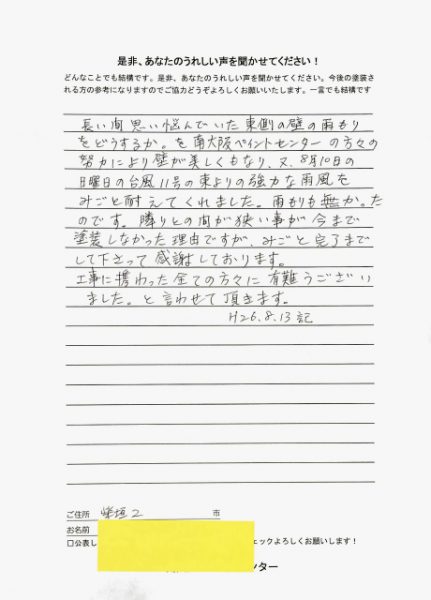 是非、あなたのうれしい声を聞かせてください！
どんなことでも結構です。是非、あなたのうれしい声を聞かせてください。今後の塗装さ
れる方の参考になりますのでご協力どうぞよろしくお願いいたします。一言でも結構です
長い間思い悩んでいた東側の壁の雨もり
をどうするか。を南大阪ペイントセンターの方々の
努力により壁が美しくもなり、又、8月10日の
日曜日の台風11号の東よりの強力な雨風を
みごと耐えてくれました。雨もりも無か。た
のです。隣りとの間が狭い事が今まで
塗装しなかった理由ですが、みごと完了まで
して下さって感謝しております。
工事に携わった全ての方々に有難うござい
ました。と言わせて頂きます。
H26.8.13記
ご住所 柴垣2 市
お名前
口公表し ェックよろしくお願いします！
ンター